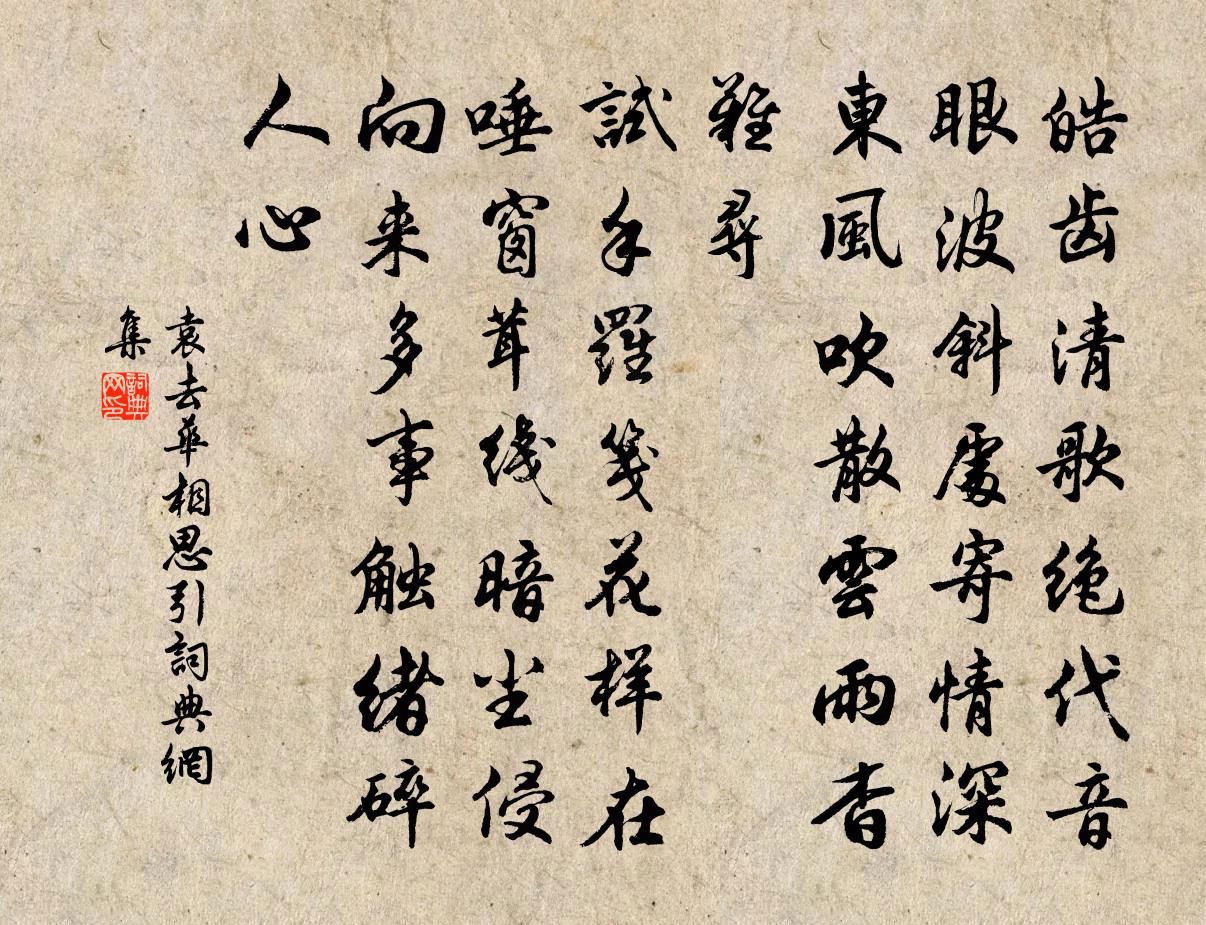 皓齿清歌绝代音
眼波斜處寄情深
東風吹散雲雨杳
難尋
試手羅笺花样在
唾窗茸线暗尘侵
向来多事触绪碎
人心
袁去華相思引詞典網
集
詞典
网印